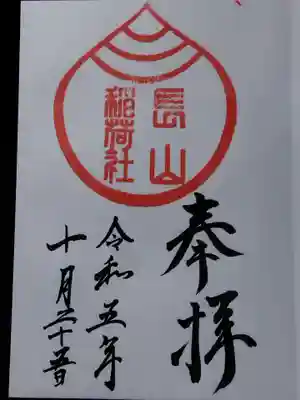 長山
稲荷社
奉拝
令和五年
十月二十五日